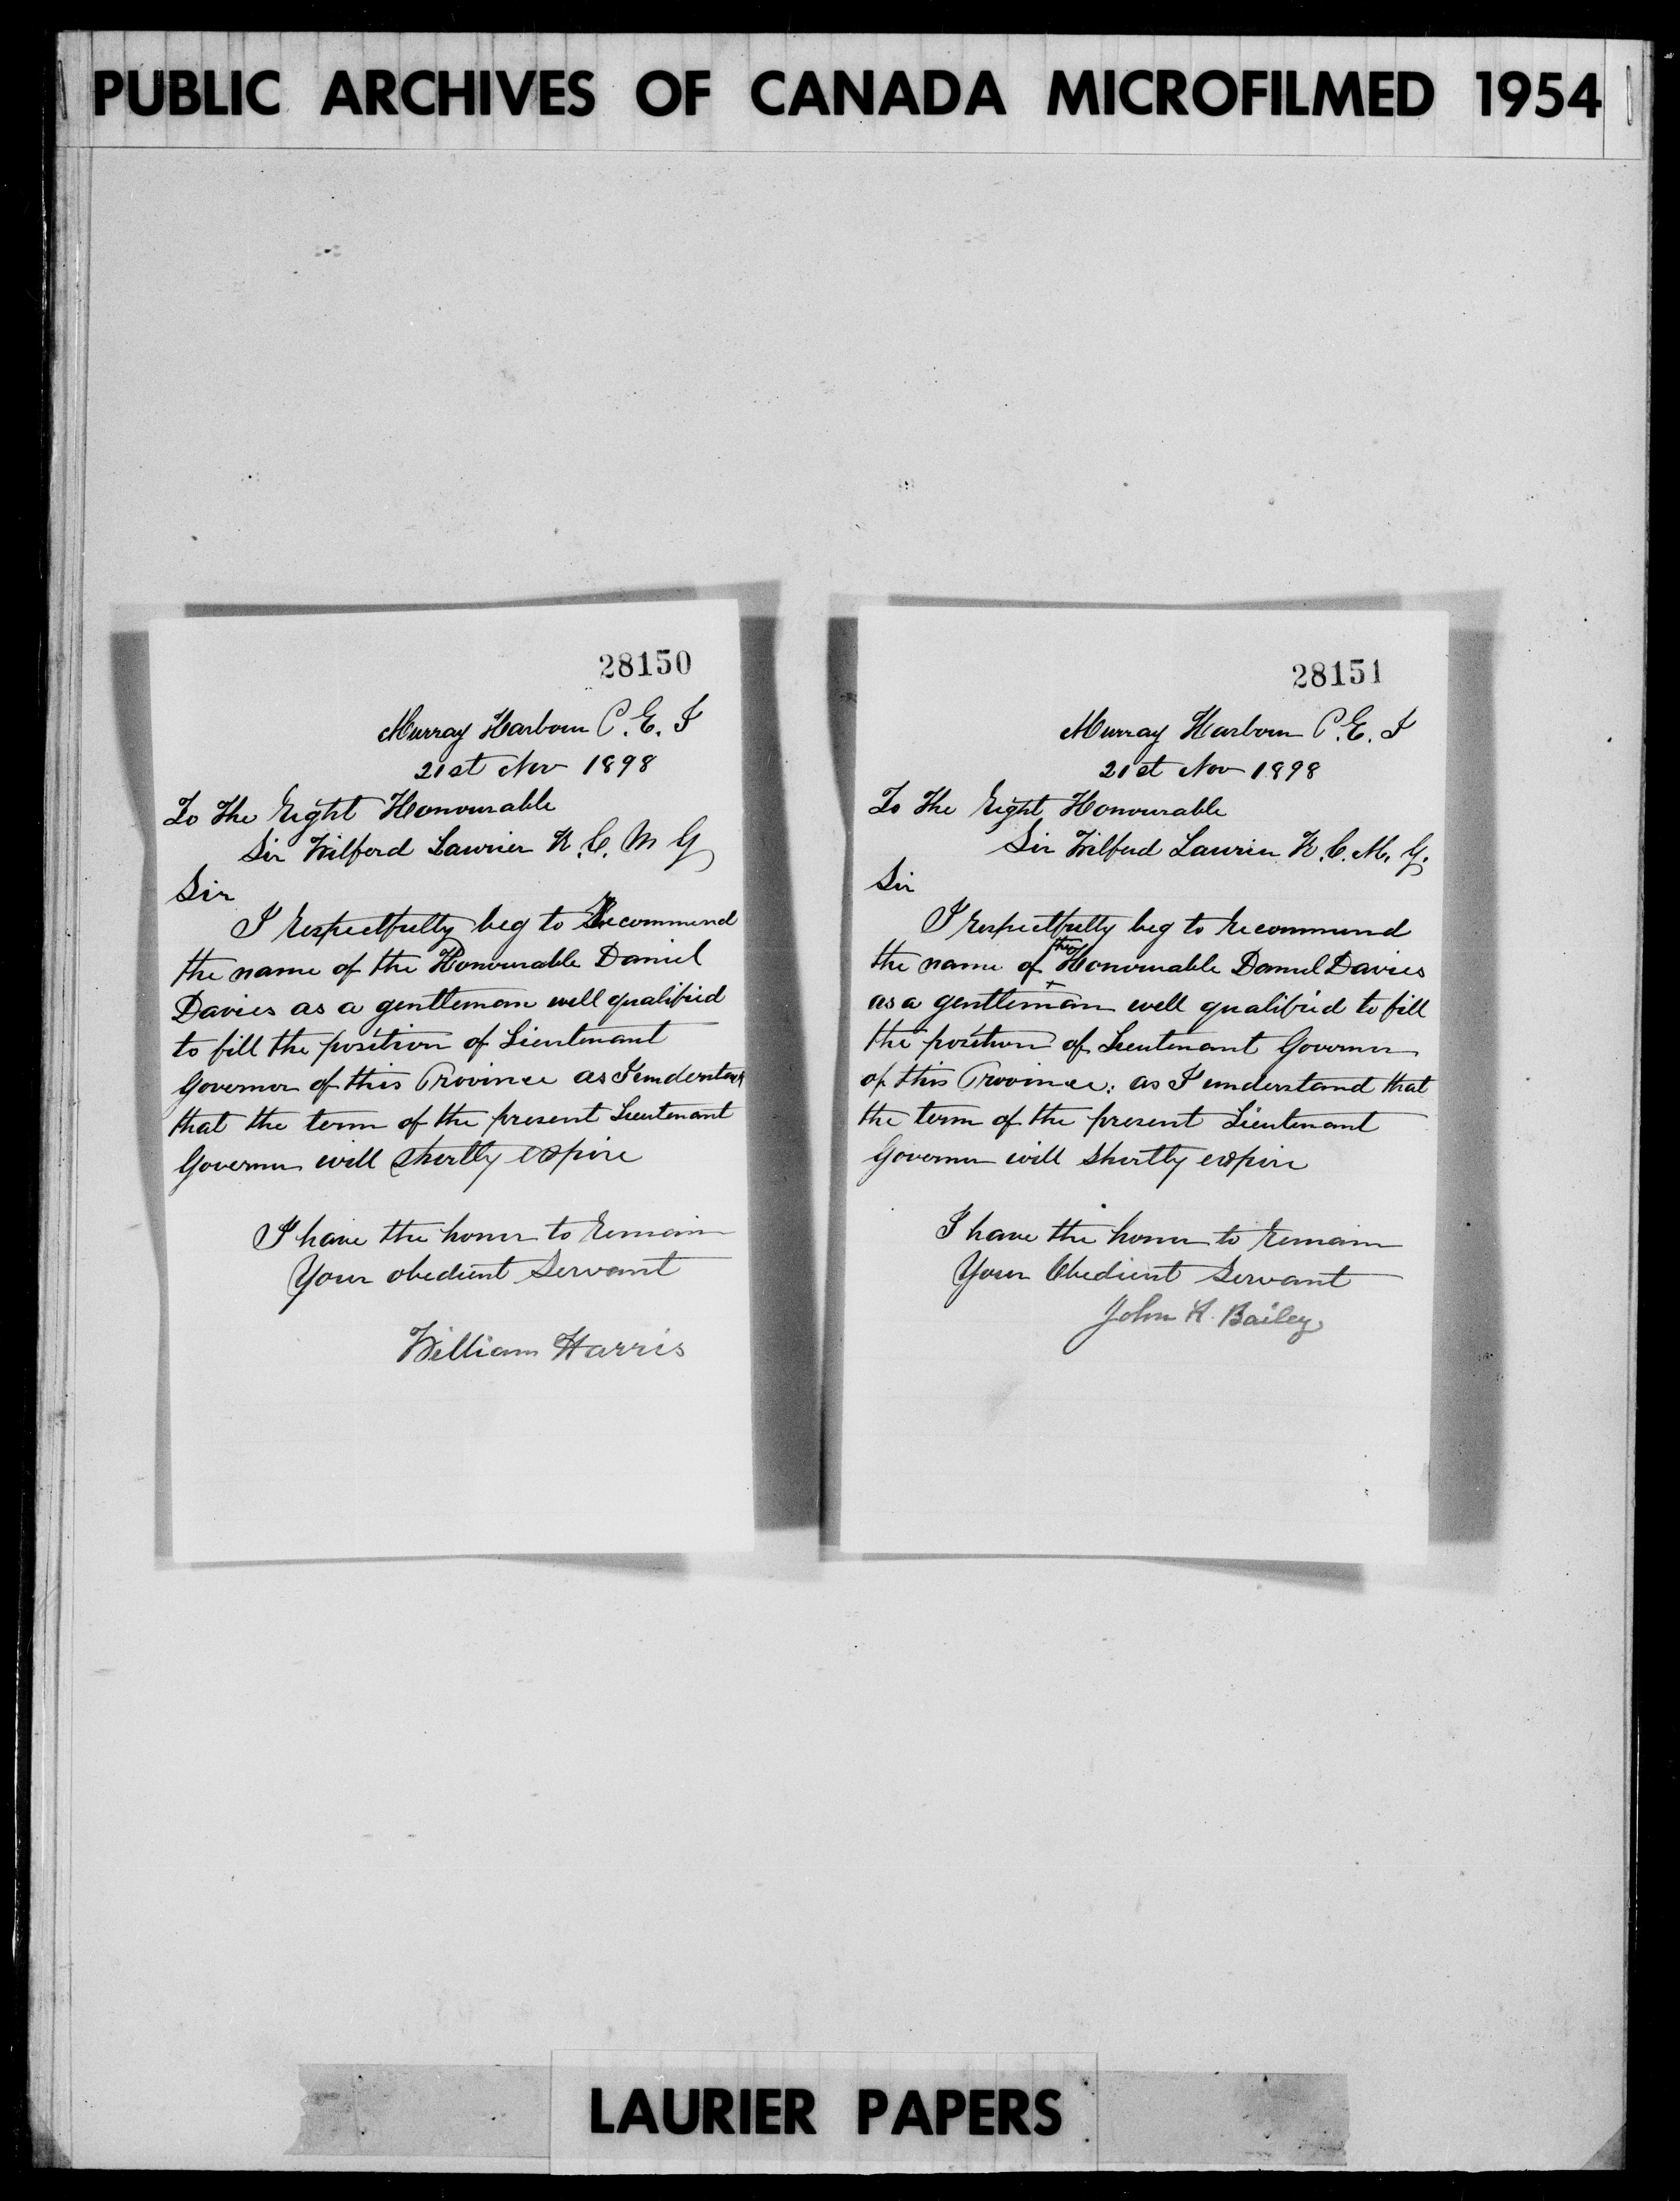 PUBLIC ARCHIVES OF CANADA MICROFILMED 1954
28150
Murray Harbour P.E.I
21st Nov 1898
To the Right Honourable
Sir Wilford Laurier K.C.M G
Sir
I respectfully beg to Recommend
the name of the Honourable Daniel
Davies as a gentleman well qualified
to fill the position of Lieutenant
Governor of this Province as I understand
that the term of the present Lieutenant
Governor will shortly expire
I have the honor to remain
Your obedient Servant
William Harris
28151
Murray Harbour P.E.I
21st Nov 1898
To the Right Honourable
Sir Wilford Laurier K.C.M.G.
Sir
I respectfully beg to recommend
the name of the Honourable Daniel Davies
as a gentleman well qualified to fill
the position of Lieutenant Governor
of this Province: as I understand that
the term of the present Lieutenant
Governor will shortly expire
I have the honor to remain
Your Obedient Servant
John K. Bailey
LAURIER PAPERS